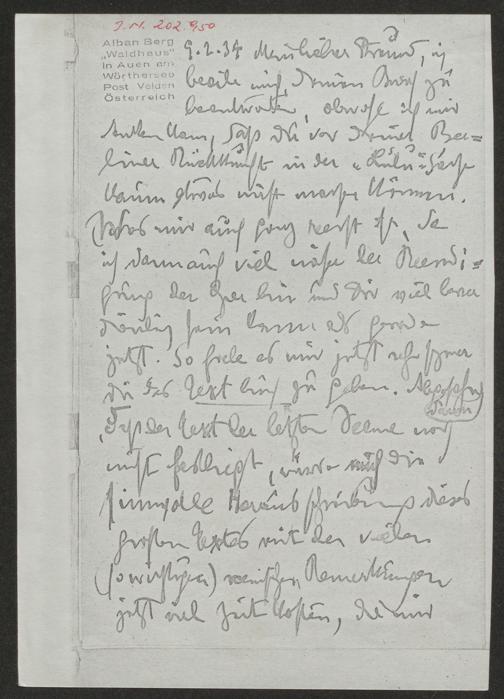 J.N. 202.950
Alban Berg
„Waldhaus"
in Auen am
Wörthersee
Post Velden
Österreich
9.2.34 Mein lieber Freund, ich
beeile mich, Deinen Brief zu
beantworten, obwohl ich mir
denken kann, daß Du vor Deiner Ber=
liner Rückkunft in der „Lulu"-Sache
kaum etwas wirst machen können.
Was mir auch ganz recht ist, da
ich dann auch viel näher der Beendi=
gung der Oper bin und Dir viel
sein kann als gerade
jetzt. So fiele es mir jetzt sehr schwer
Dir das Textbuch zu geben. Abgesehen
davon
, daß der Text der letzten Scene noch
nicht festliegt, würde mich die
sinnvolle Herausschreibung dieses
großen Textes mit den vielen
(so wichtigen) szenischen Bemerkungen
jetzt viel Zeit kosten, die mir